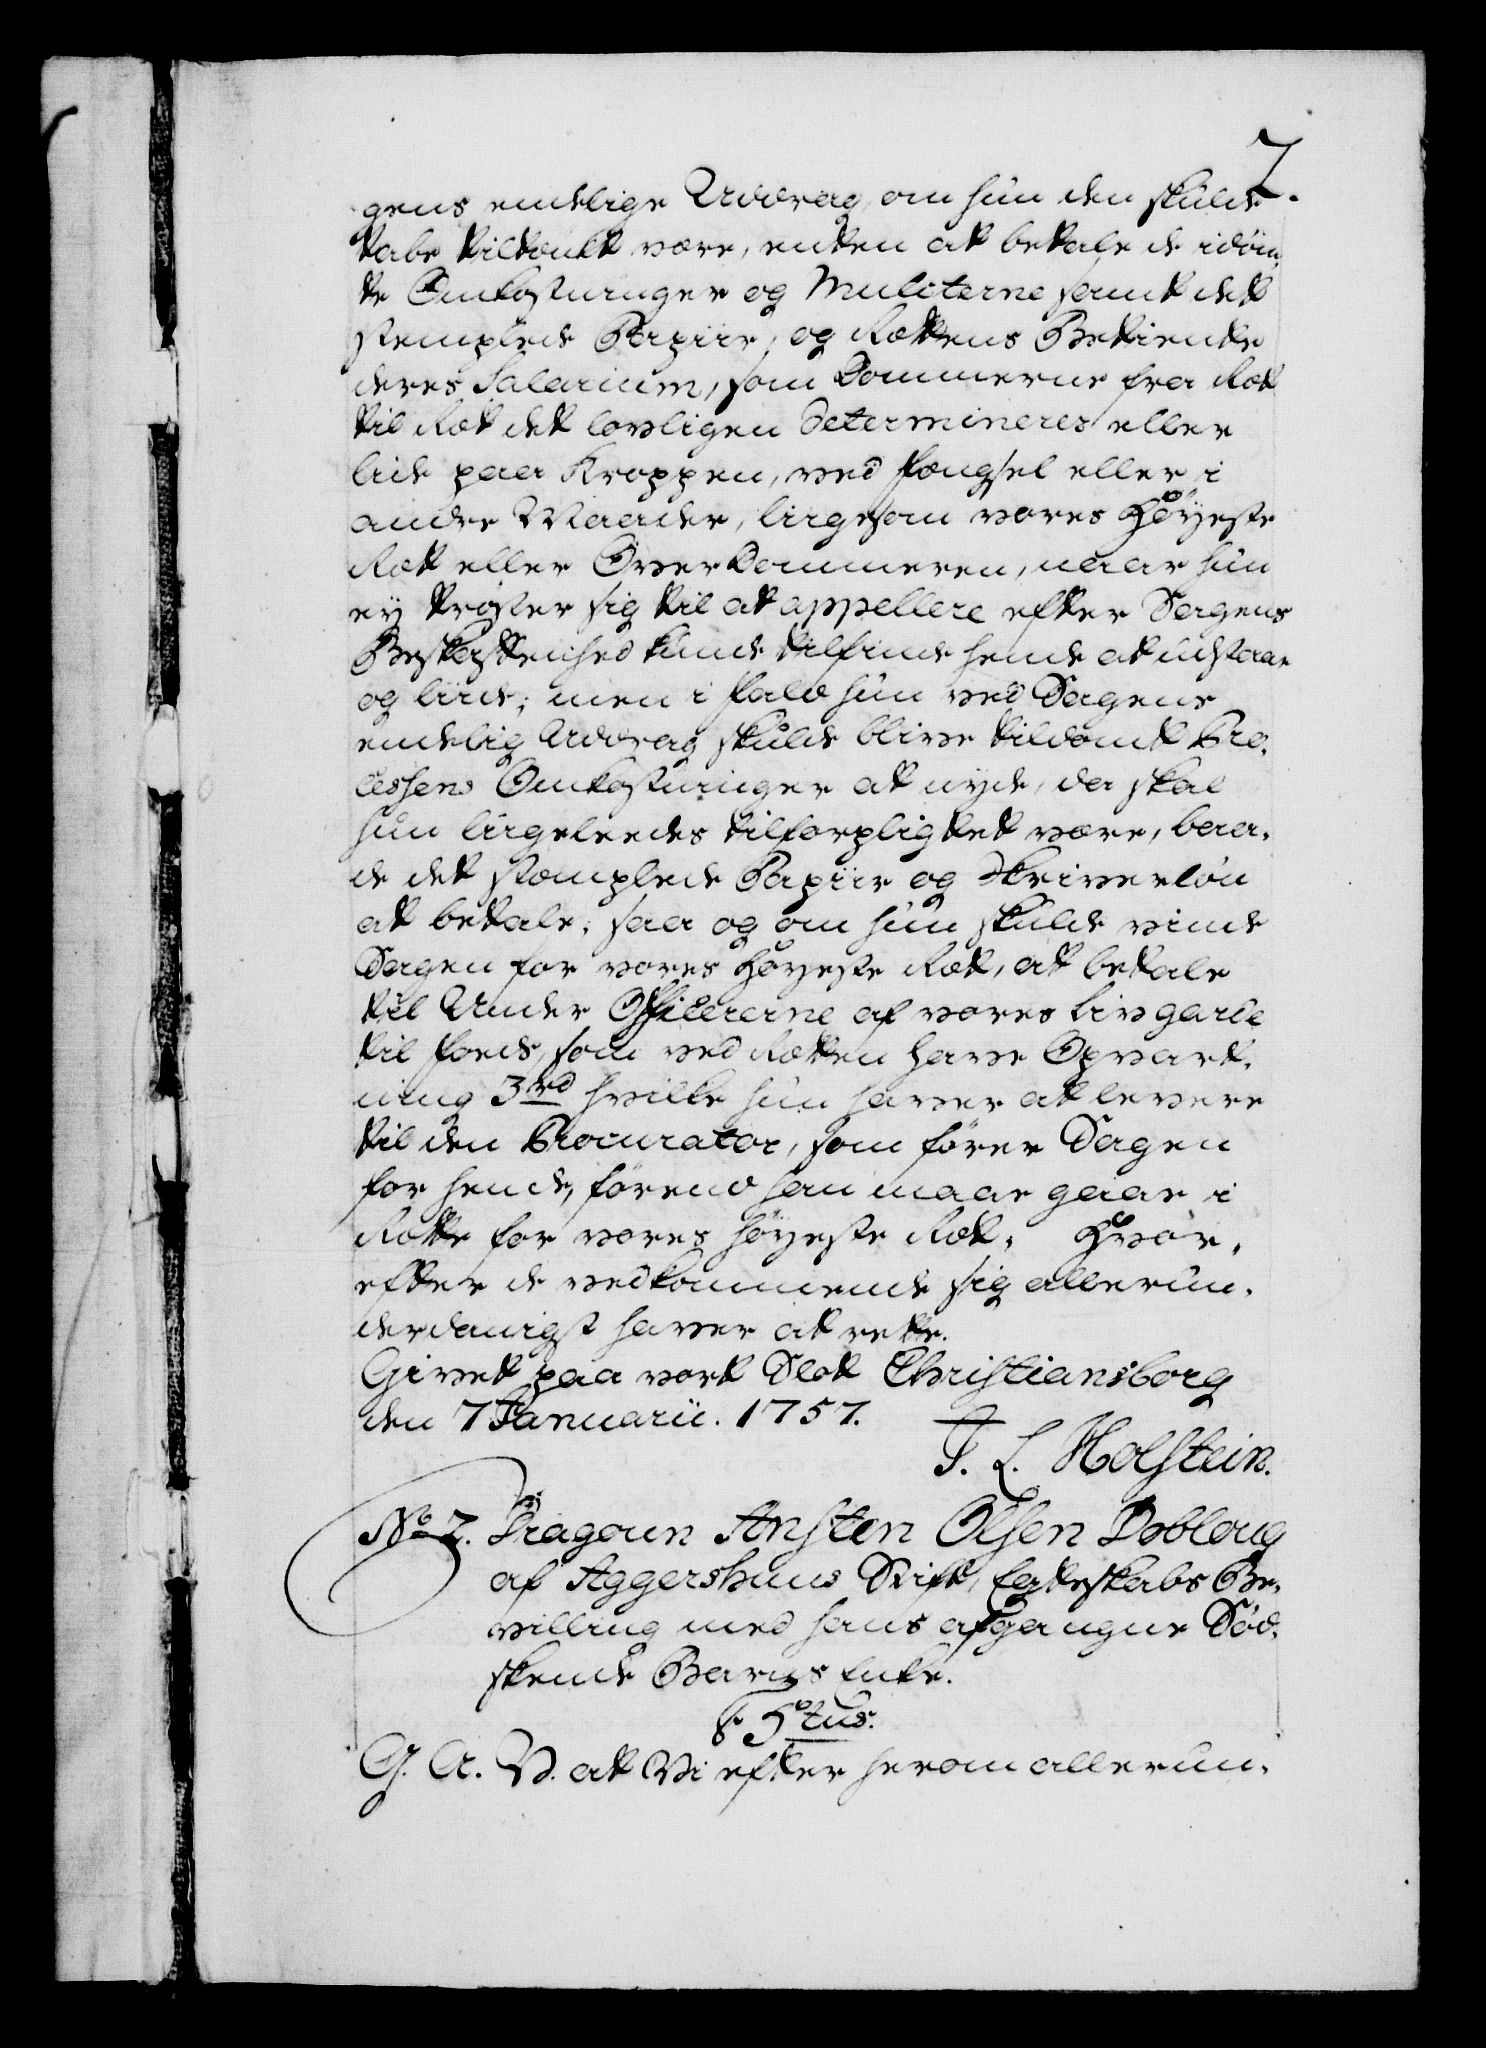 7.
gens endelige Uddrag, om hun den skulde
tabe tilholdt være, enten at betale de idöm¬
te Omkostninger og Mulcterne samt det
stemplede Papiir, og Rettens Betiente
deres Salarium, som Dommerne fra Ræt
til Ræt det lovligen determinerer eller
lide paa Kroppen, ved Fængsel eller i
andre Maader, ligesom vores Höyeste
Ræt eller Over Dommeren, naar hun
ey tröster sig til at appellere efter Sagens
Beskaffenhed kunde tilfinde hende at udstaae
og liide; men i fald hun ved Sagens
endelig Uddrag skulde blive tildömt Pro¬
cessens Omkostninger at nyde, da skal
hun liigeleedes tilforpligtet være, baa¬
de det stemplede Papiir og Skriverlön
at betale; saa og om hun skulde vinde
Sagen for vores Höyeste Ræt, at betale
til Under Officererne af vores Livgarde
til Fods, som ved Retten have Opvart¬
ning 3 rd hvilke hun haver at levere
til den Procurator, som förer Sagen
for hende, förend han maae gaae i
Rette for vores höyeste Ræt. Hvor¬
efter de vedkommende sig allerun¬
derdanigst haver at rette.
Givet paa vort Slot Christiansborg
den 7 Januarii. 1757.
J. L. Holstein.
No 7. Dragoun Ansten Olsen Dobloug
af Aggershuus Stift, Egteskabs Be¬
villing med hans afgangne Sød¬
skende Barns Enke.
F. 5tus.
G. A. V. at Vi efter herom allerun¬